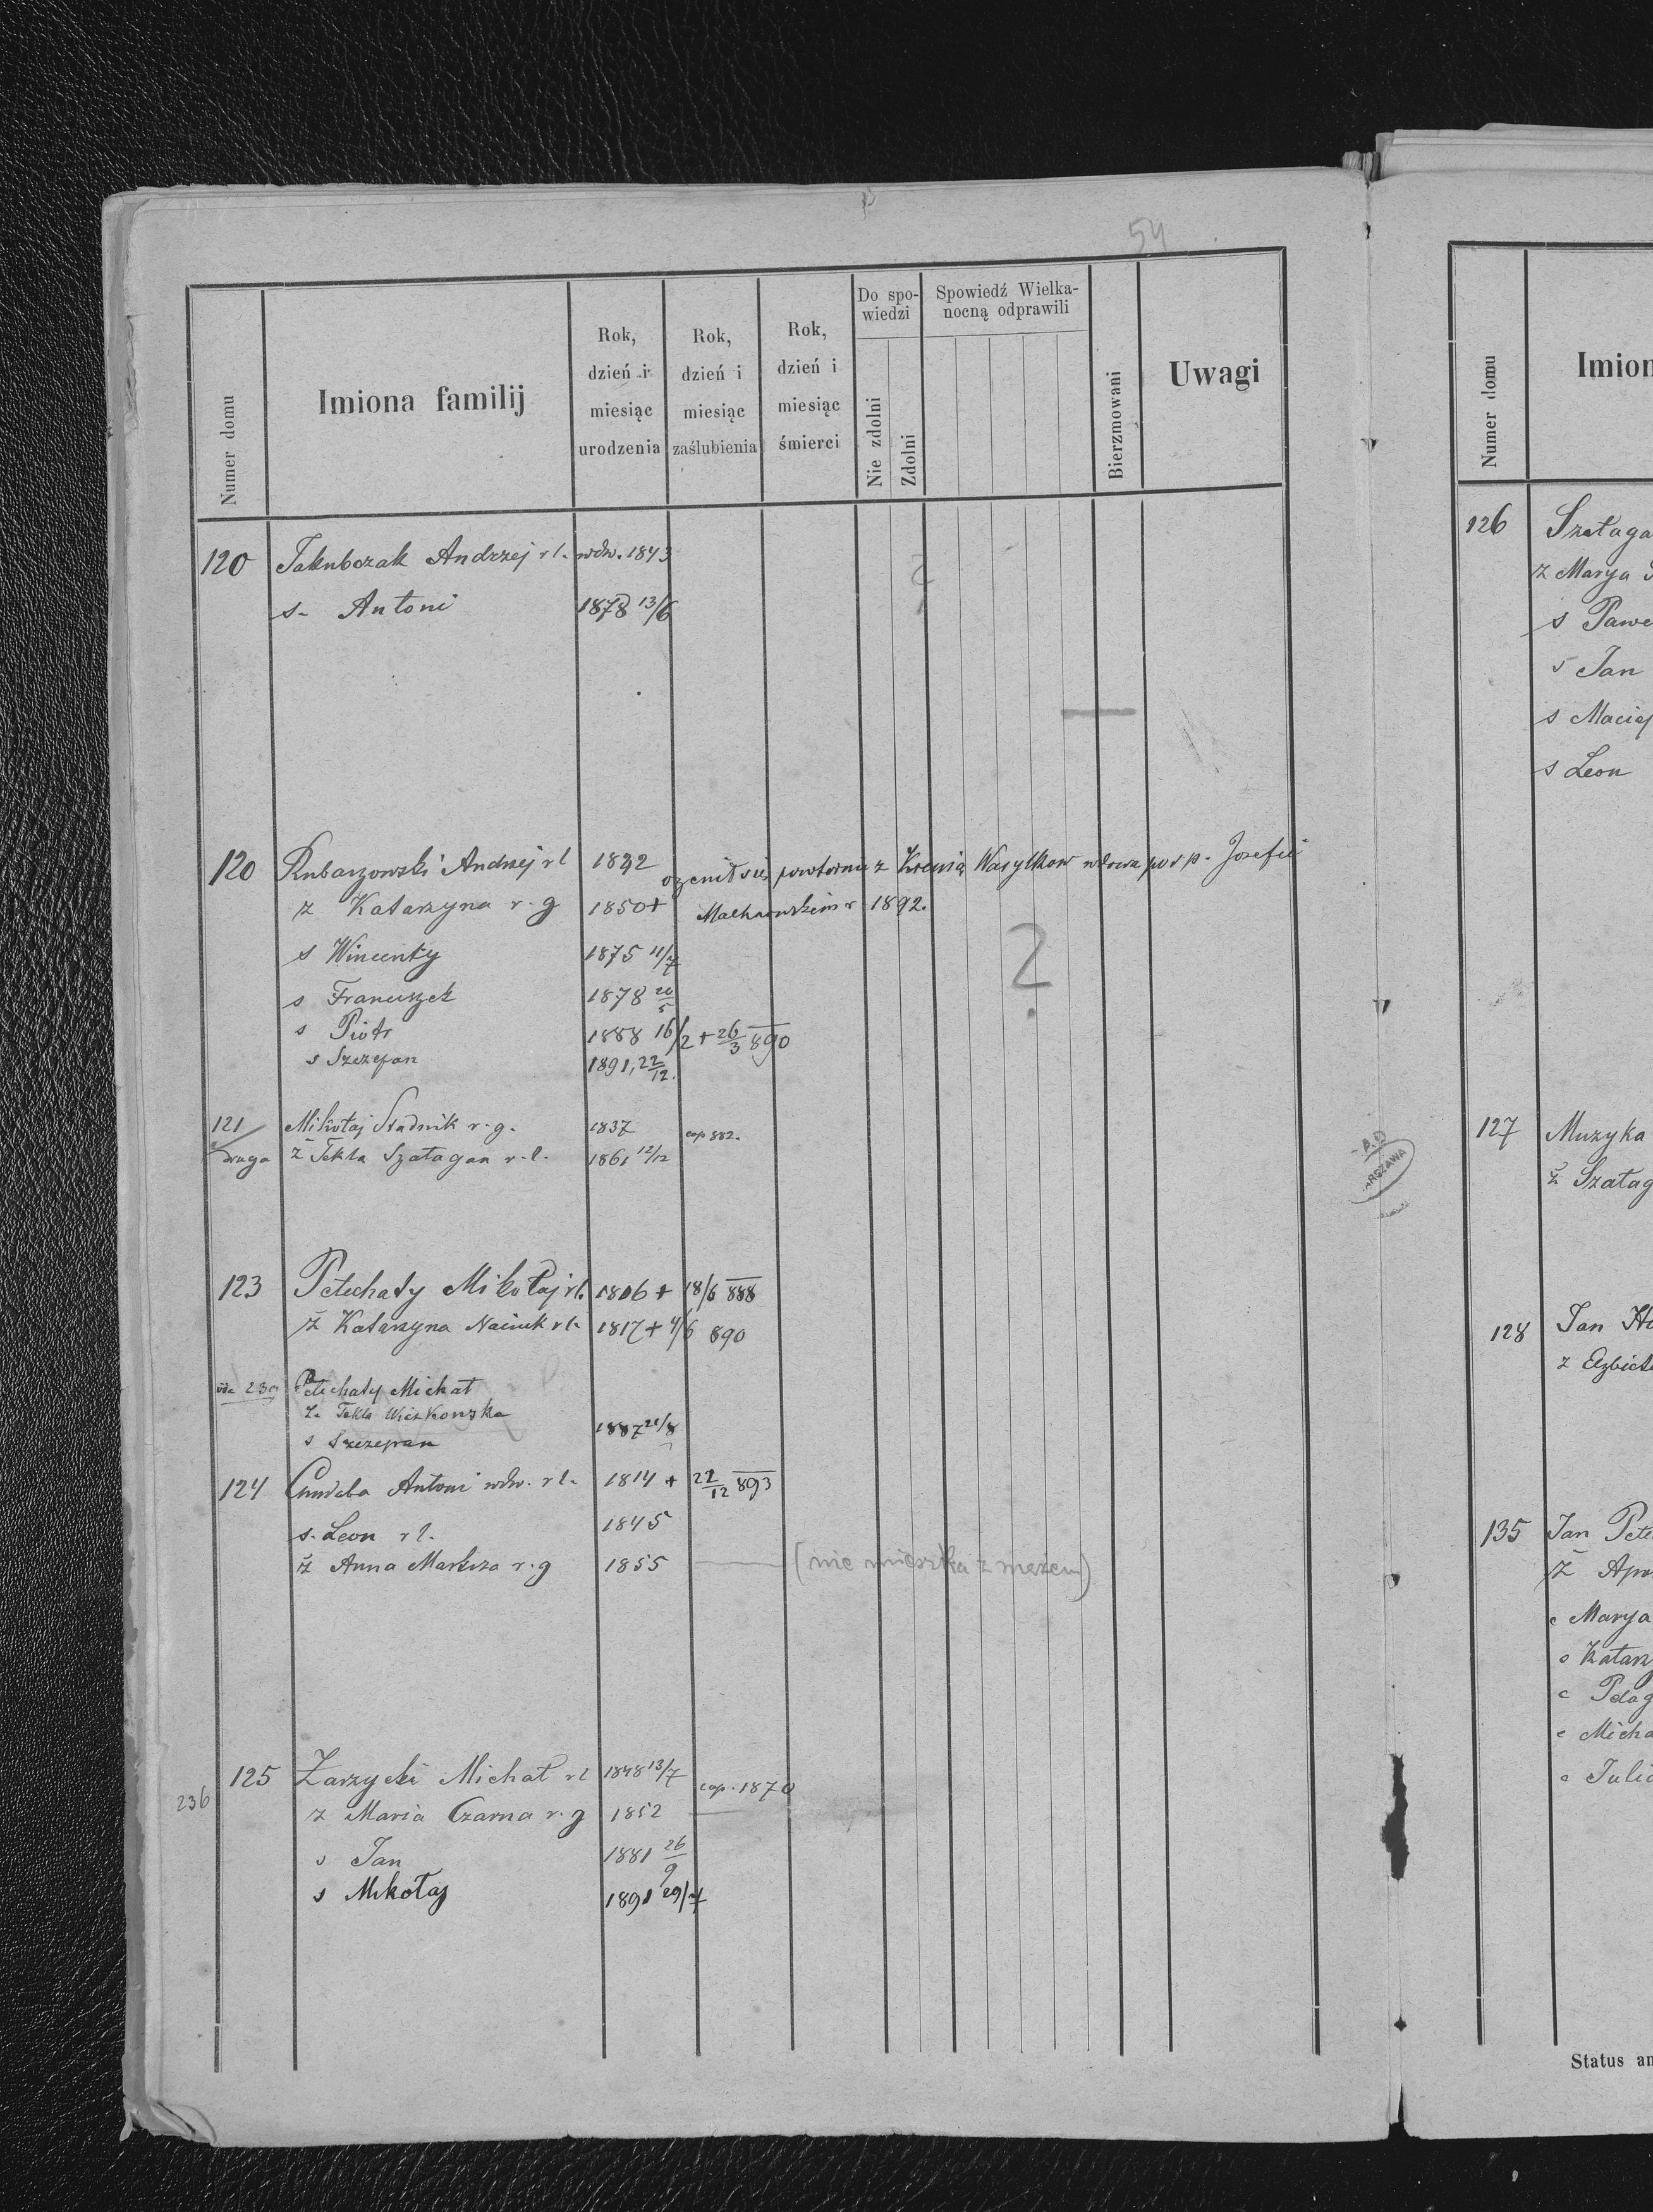 54
Numer domu
Imiona familij
Rok, dzień i miesiąc urodzenia
Rok, dzień i miesiąc zaślubienia
Rok, dzień i miesiąc śmierci
Do spowiedzi
Nie zdolni
Zdolni
Spowiedź Wielkanocną odprawili
Bierzmowani
Uwagi
120 Jakubczak Andrzej rl. wdw. 1843
s. Antoni 1878 13/6
?
120 Rubarzowski Andrzej rl 1842 ożenił się powtórnie z Wasylkow wdową po ś p. Józefie
ż Katarzyna r. g 1850 + r 1892.
s Wincenty 1875 11/7
s Franciszek 1878 20/5
s Piotr 1888 16/2 + 26/3 890
s Szczepan 1891, 22/12.
?
121 Mikołaj Stadnik r. g. 1837 cop 882.
druga ż Tekla Szałagan r. l. 1861 12/12
123 Petechaty Mikołaj rl. 1806 + 18/6 888
ż Katarzyna rl. 1817 + 4/6 890
vide 230 Petechaty Michał
ż. Tekla
s Szczepan 1887 21/8
124 Antoni wdw. rl. 1814 + 22/12 893
s. Leon rl. 1845
ż Anna r. g 1855 (nie mieszka z mężem)
236
125 Zarzycki Michał rl 1848 13/7 cop. 1870
ż Maria Czarna r. g 1852
s Jan 1881 26/9
s Mikołaj 1891 29/7
Numer domu
Imion
126 Szałaga
ż Marya
s Pawe
s Jan
s Maciej
s Leon
127 Muzyka
ż Szałag
128 Jan
ż Elżbiet
135 Jan Pete
ż Apo
c Marya
c Katarz
c Pelag
c Micha
c Juli
Status an